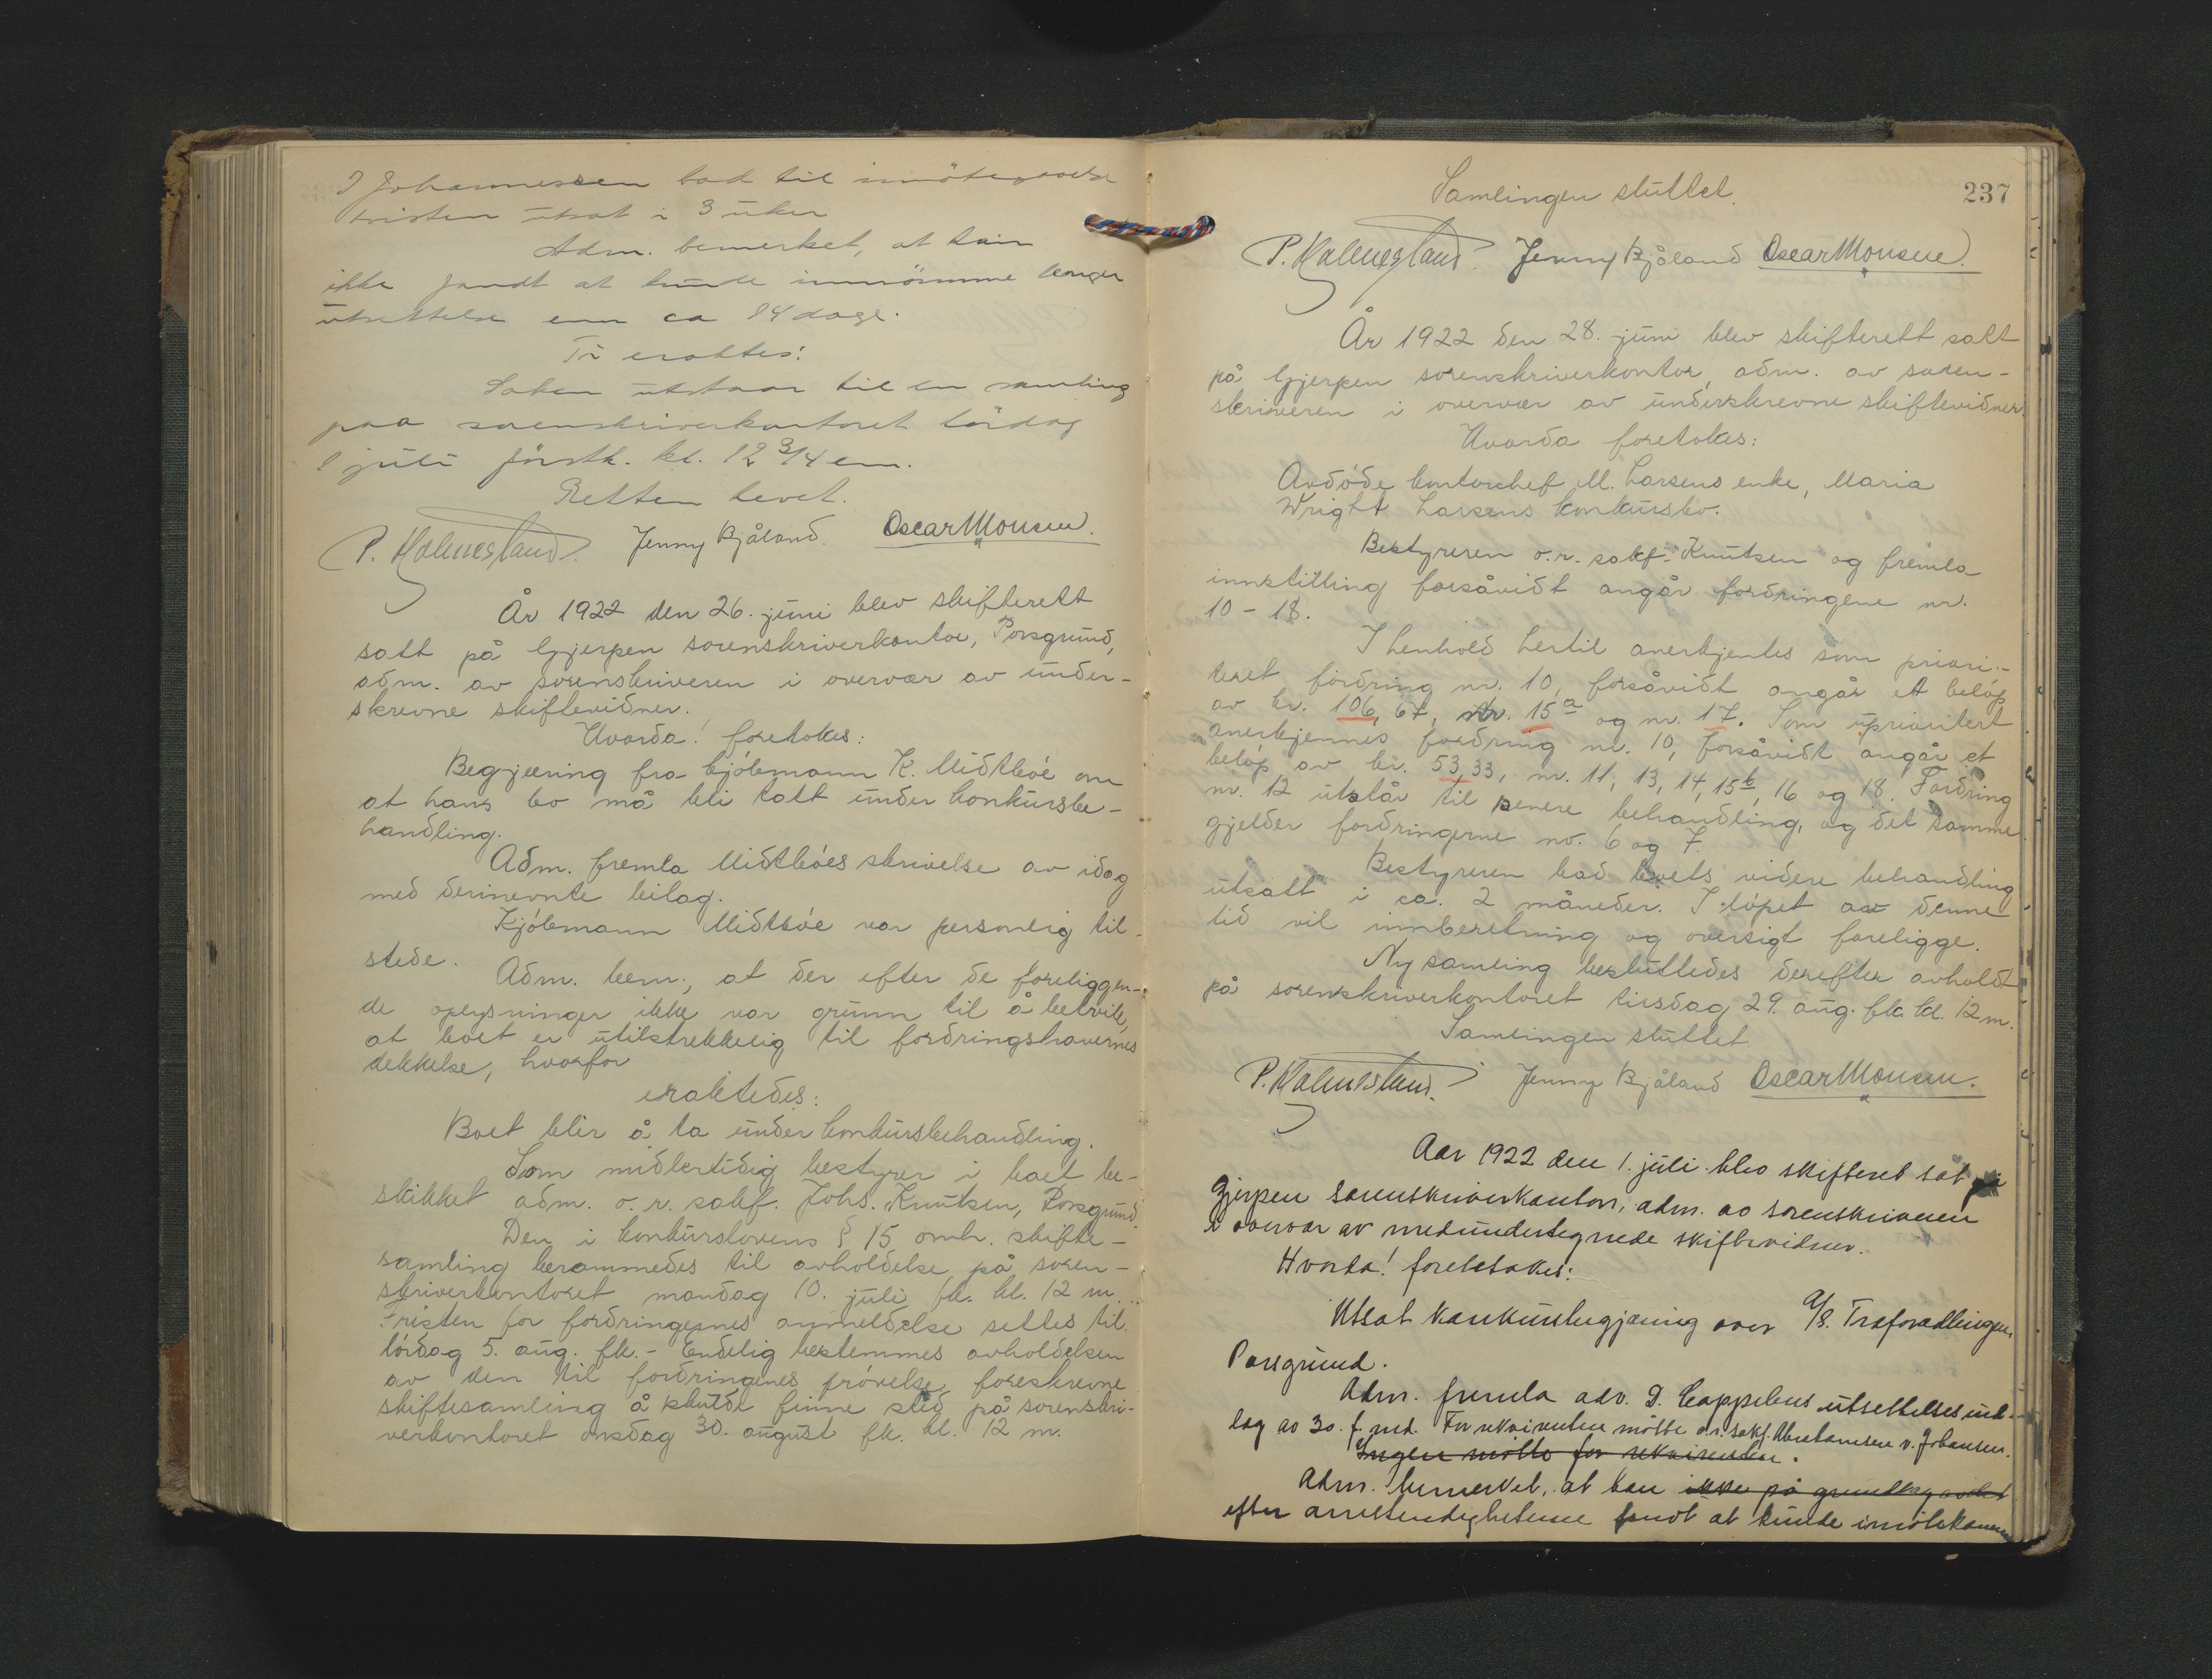 Johannessen bad til imötegaaelse
fristen utsat i 3 uker
Adm. bemerket, at han
ikke fandt at kunde innrömme lenger
utsettelse enn ca 14 dage.
Ti eraktes:
Saken utstaar til en samling
paa sorenskriverkontoret lördag
1 juli förstk. kl. 12 3/4 em.
Retten hevet.
P. Kalmesland. Jenny Bjåland. Oscar Monsen.
År 1922 den 26. juni blev skifterett
satt på Gjerpen sorenskriverkontor, Porsgrund,
adm. av sorenskriveren i overvær av under-
skrevne skiftevidner.
Hvorda! foretokes:
Begjæring fra kjöbmann K. Midtböe om
at hans bo må bli tatt under konkursbe-
handling.
Adm. fremla Midtböes skrivelse av idag
med derinevnte bilag.
Kjöbmann Midtböe var personlig til-
stede.
Adm. bem., at der efter de foreliggen-
de oplysninger ikke var grunn til å betvile,
at boet er utilstrekkelig til fordringshavernes
dekkelse, hvorfor
eraktedes:
Boet blir å ta under konkursbehandling.
Som midlertidig bestyrer i boet be-
skikket adm. o. r. sakf. Johs. Knutsen, Porsgrund.
Den i konkurslovens § 15 omh. skifte-
samling berammedes til avholdelse på soren-
skriverkontoret mandag 10. juli fk. kl. 12 m.
Fristen for fordringenes anmeldelse settes til
lördag 5. aug. fk. - Endelig bestemmes avholdelsen
av den til fordringenes prövelse foreskrevne
skiftesamling å skulde finne sted på sorenskri-
verkontoret onsdag 30. august fk. kl. 12 m.
237
Samlingen sluttet.
P. Kalmesland. Jenny Bjåland Oscar Monsen.
År 1922 den 28. juni blev skifterett satt
på Gjerpen sorenskriverkontor, adm. av soren-
skriveren i overvær av underskrevne skiftevidner.
Hvorda foretokes:
Avdöde kontorchef M. Larsens enke, Maria
Wright Larsens konkursbo.
Bestyreren o.r. sakf. Knutsen og fremla
innstilling forsåvidt angår fordringene nr.
10 - 18.
I henhold hertil anerkjentes som priori-
teret fordring nr. 10, forsåvidt angår et belöp
av kr. 106,67, nr. 15a og nr. 17. Som uprioritert
anerkjennes fordring nr. 10, forsåvidt angår et
belöp av kr. 53,33, nr. 11, 13, 14, 15b, 16 og 18. Fordring
nr. 12 utstår til senere behandling, og det samme
gjelder fordringerne nr. 6 og 7.
Bestyreren bad boets videre behandling
utsatt i ca. 2 måneder. I löpet av denne
tid vil innberetning og oversigt foreligge.
Ny samling besluttedes derefter avholdt
på sorenskriverkontoret tirsdag 29. aug. fk. kl. 12 m.
Samlingen sluttet
P. Kalmesland. Jenny Bjåland Oscar Monsen.
Aar 1922 den 1. juli blev skifteret sat på
Gjerpen sorenskriverkontor, adm. av sorenskriveren
i overvær av medundertegnede skiftevidner.
Hvorda! foretokes:
Utsat konkursbegjæring over A/S. Træforædlingen,
Porsgrund.
Adm. fremla adv. D. Cappelens utsettelsesind-
læg av 30. f. md. For rekvirenten mötte o.r. sakf. v. Johansen.
Ingen mötte for rekvirenten.
Adm. bemerket, at han ikke på grundlag av det
efter omstendighetene fandt at kunde imötekomme